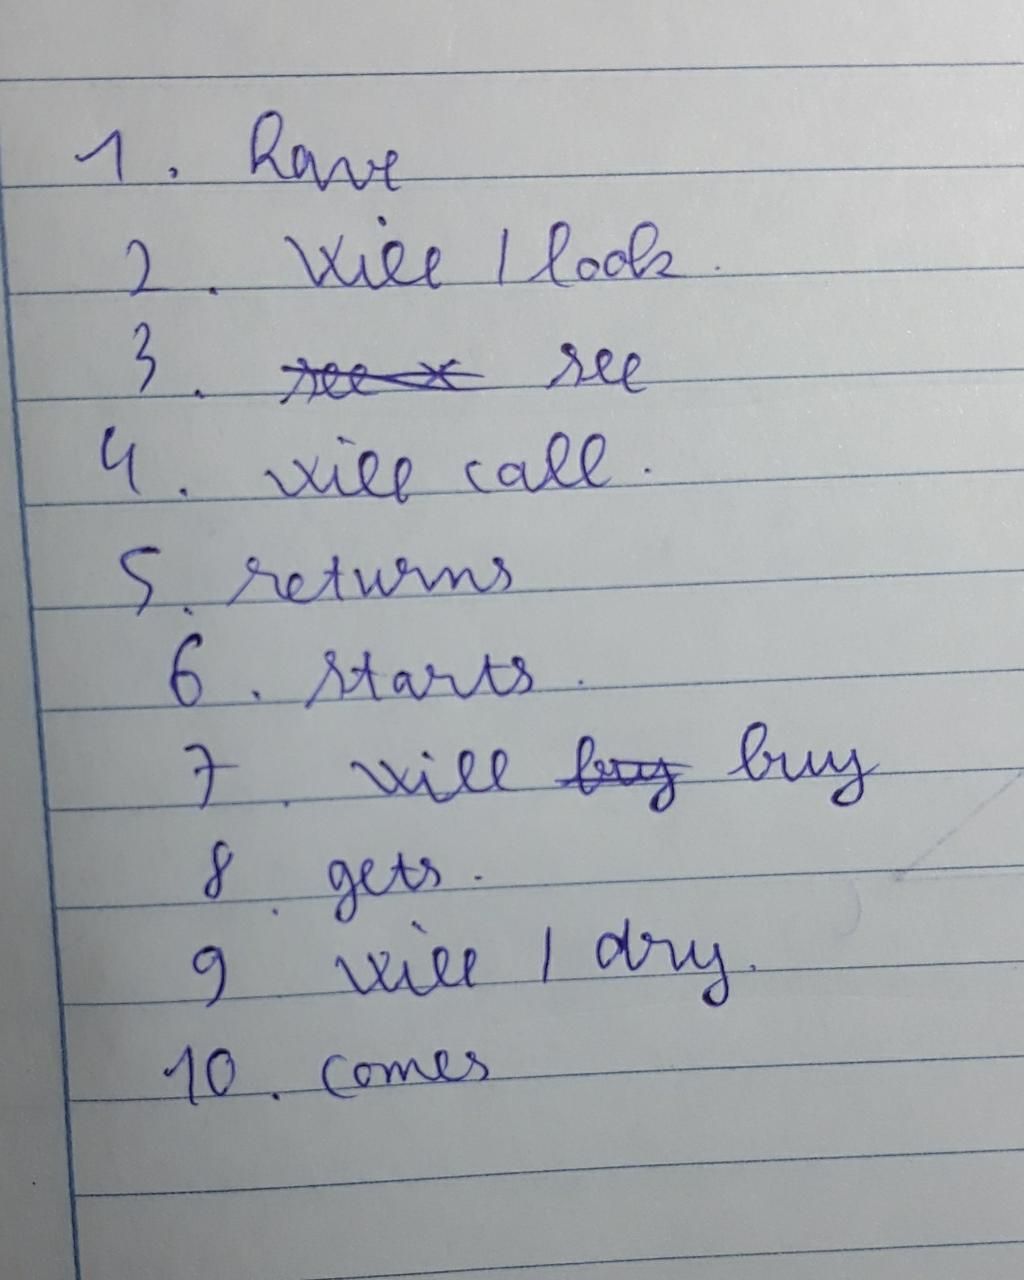 1. have
2. will / look.
3. see
4. will call.
5. returns
6. starts.
7. will buy buy
8. gets.
9. will / dry.
10. comes